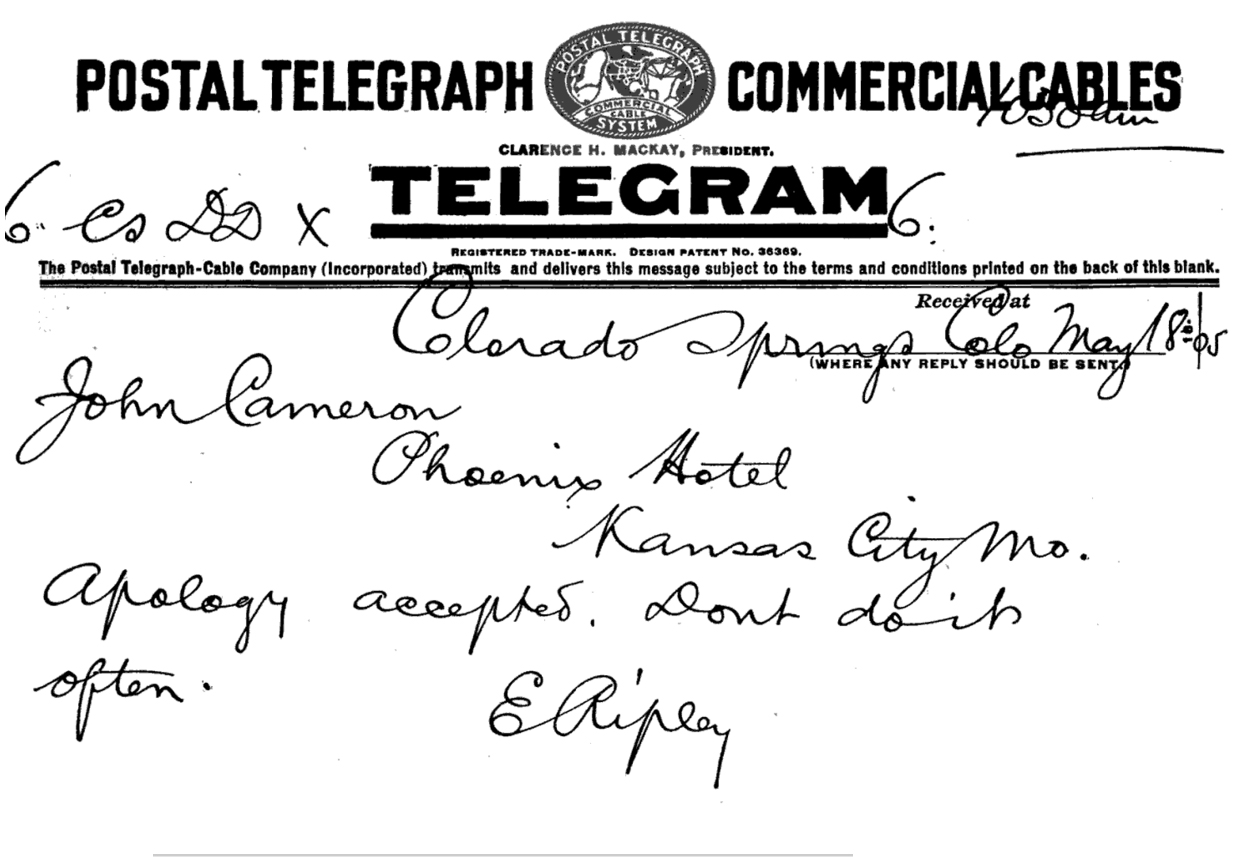 POSTAL TELEGRAPH COMMERCIAL CABLES
POSTAL TELEGRAPH
COMMERCIAL
CABLE
SYSTEM
1030am
CLARENCE H. MACKAY, PRESIDENT.
TELEGRAM
6. Cs DD X 6.
REGISTERED TRADE-MARK. DESIGN PATENT No. 36369.
The Postal Telegraph-Cable Company (Incorporated) transmits and delivers this message subject to the terms and conditions printed on the back of this blank.
Received at
Colorado Springs Colo May 18 05
(WHERE ANY REPLY SHOULD BE SENT.)
John Cameron
Phoenix Hotel
Kansas City Mo.
Apology accepted. Dont do it
often.
E Ripley